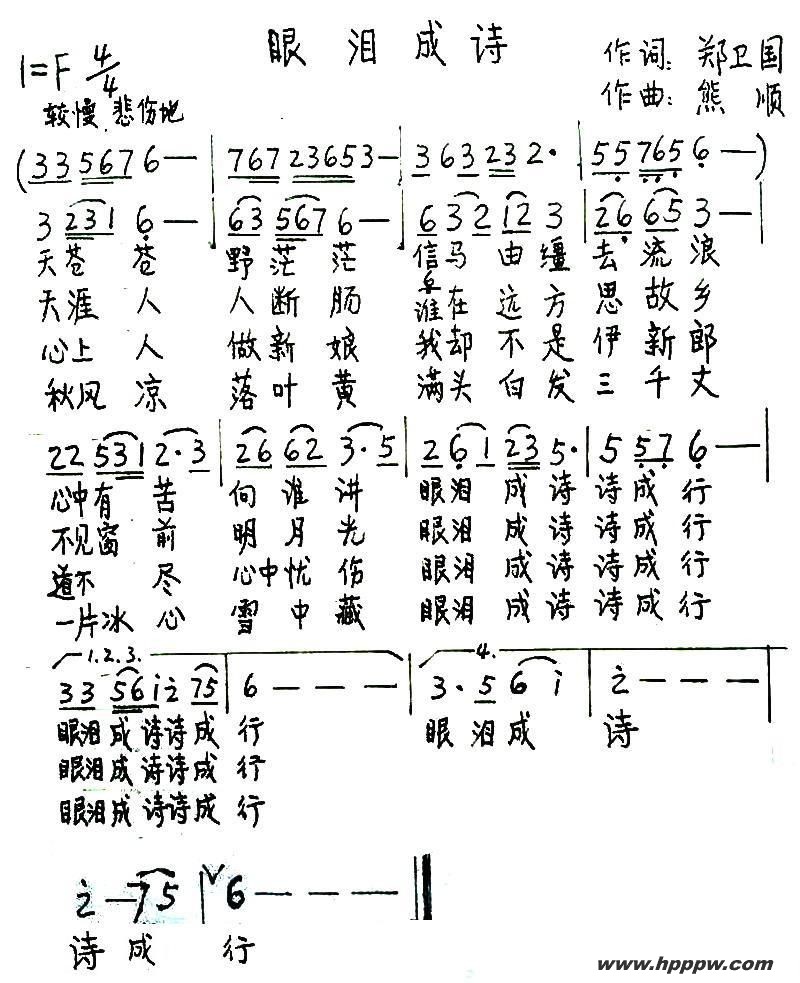 眼泪成诗
1=F 4/4
作词：郑卫国
较慢 悲伤地
作曲：熊顺
(33 5567 6— | 767 23653— | 3 63 23 2· | 55 765 6—)
3 231 6— | 63 567 6— | 6 32 12 3 | 26 65 3— |
天苍苍 野茫茫 信马由缰去流浪
天涯人 人断肠 谁在远方思故乡
心上人 做新娘 我却不是伊新郎
秋风凉 落叶黄 满头白发三千丈
22 531 2·3 | 26 62 3·5 | 2 61 23 5· | 5 57 6— |
心中有苦 向谁讲 眼泪成诗诗成行
不见窗前 明月光 眼泪成诗诗成行
道不尽 心中忧伤 眼泪成诗诗成行
一片冰心 雪中藏 眼泪成诗诗成行
1.2.3. 4.
33 56i 2 75 | 6——— | 3·5 6 i | 2——— |
眼泪成诗诗成行 眼泪成诗
眼泪成诗诗成行
眼泪成诗诗成行
2—75 | 6———— ||
诗成行
www.hpppw.com